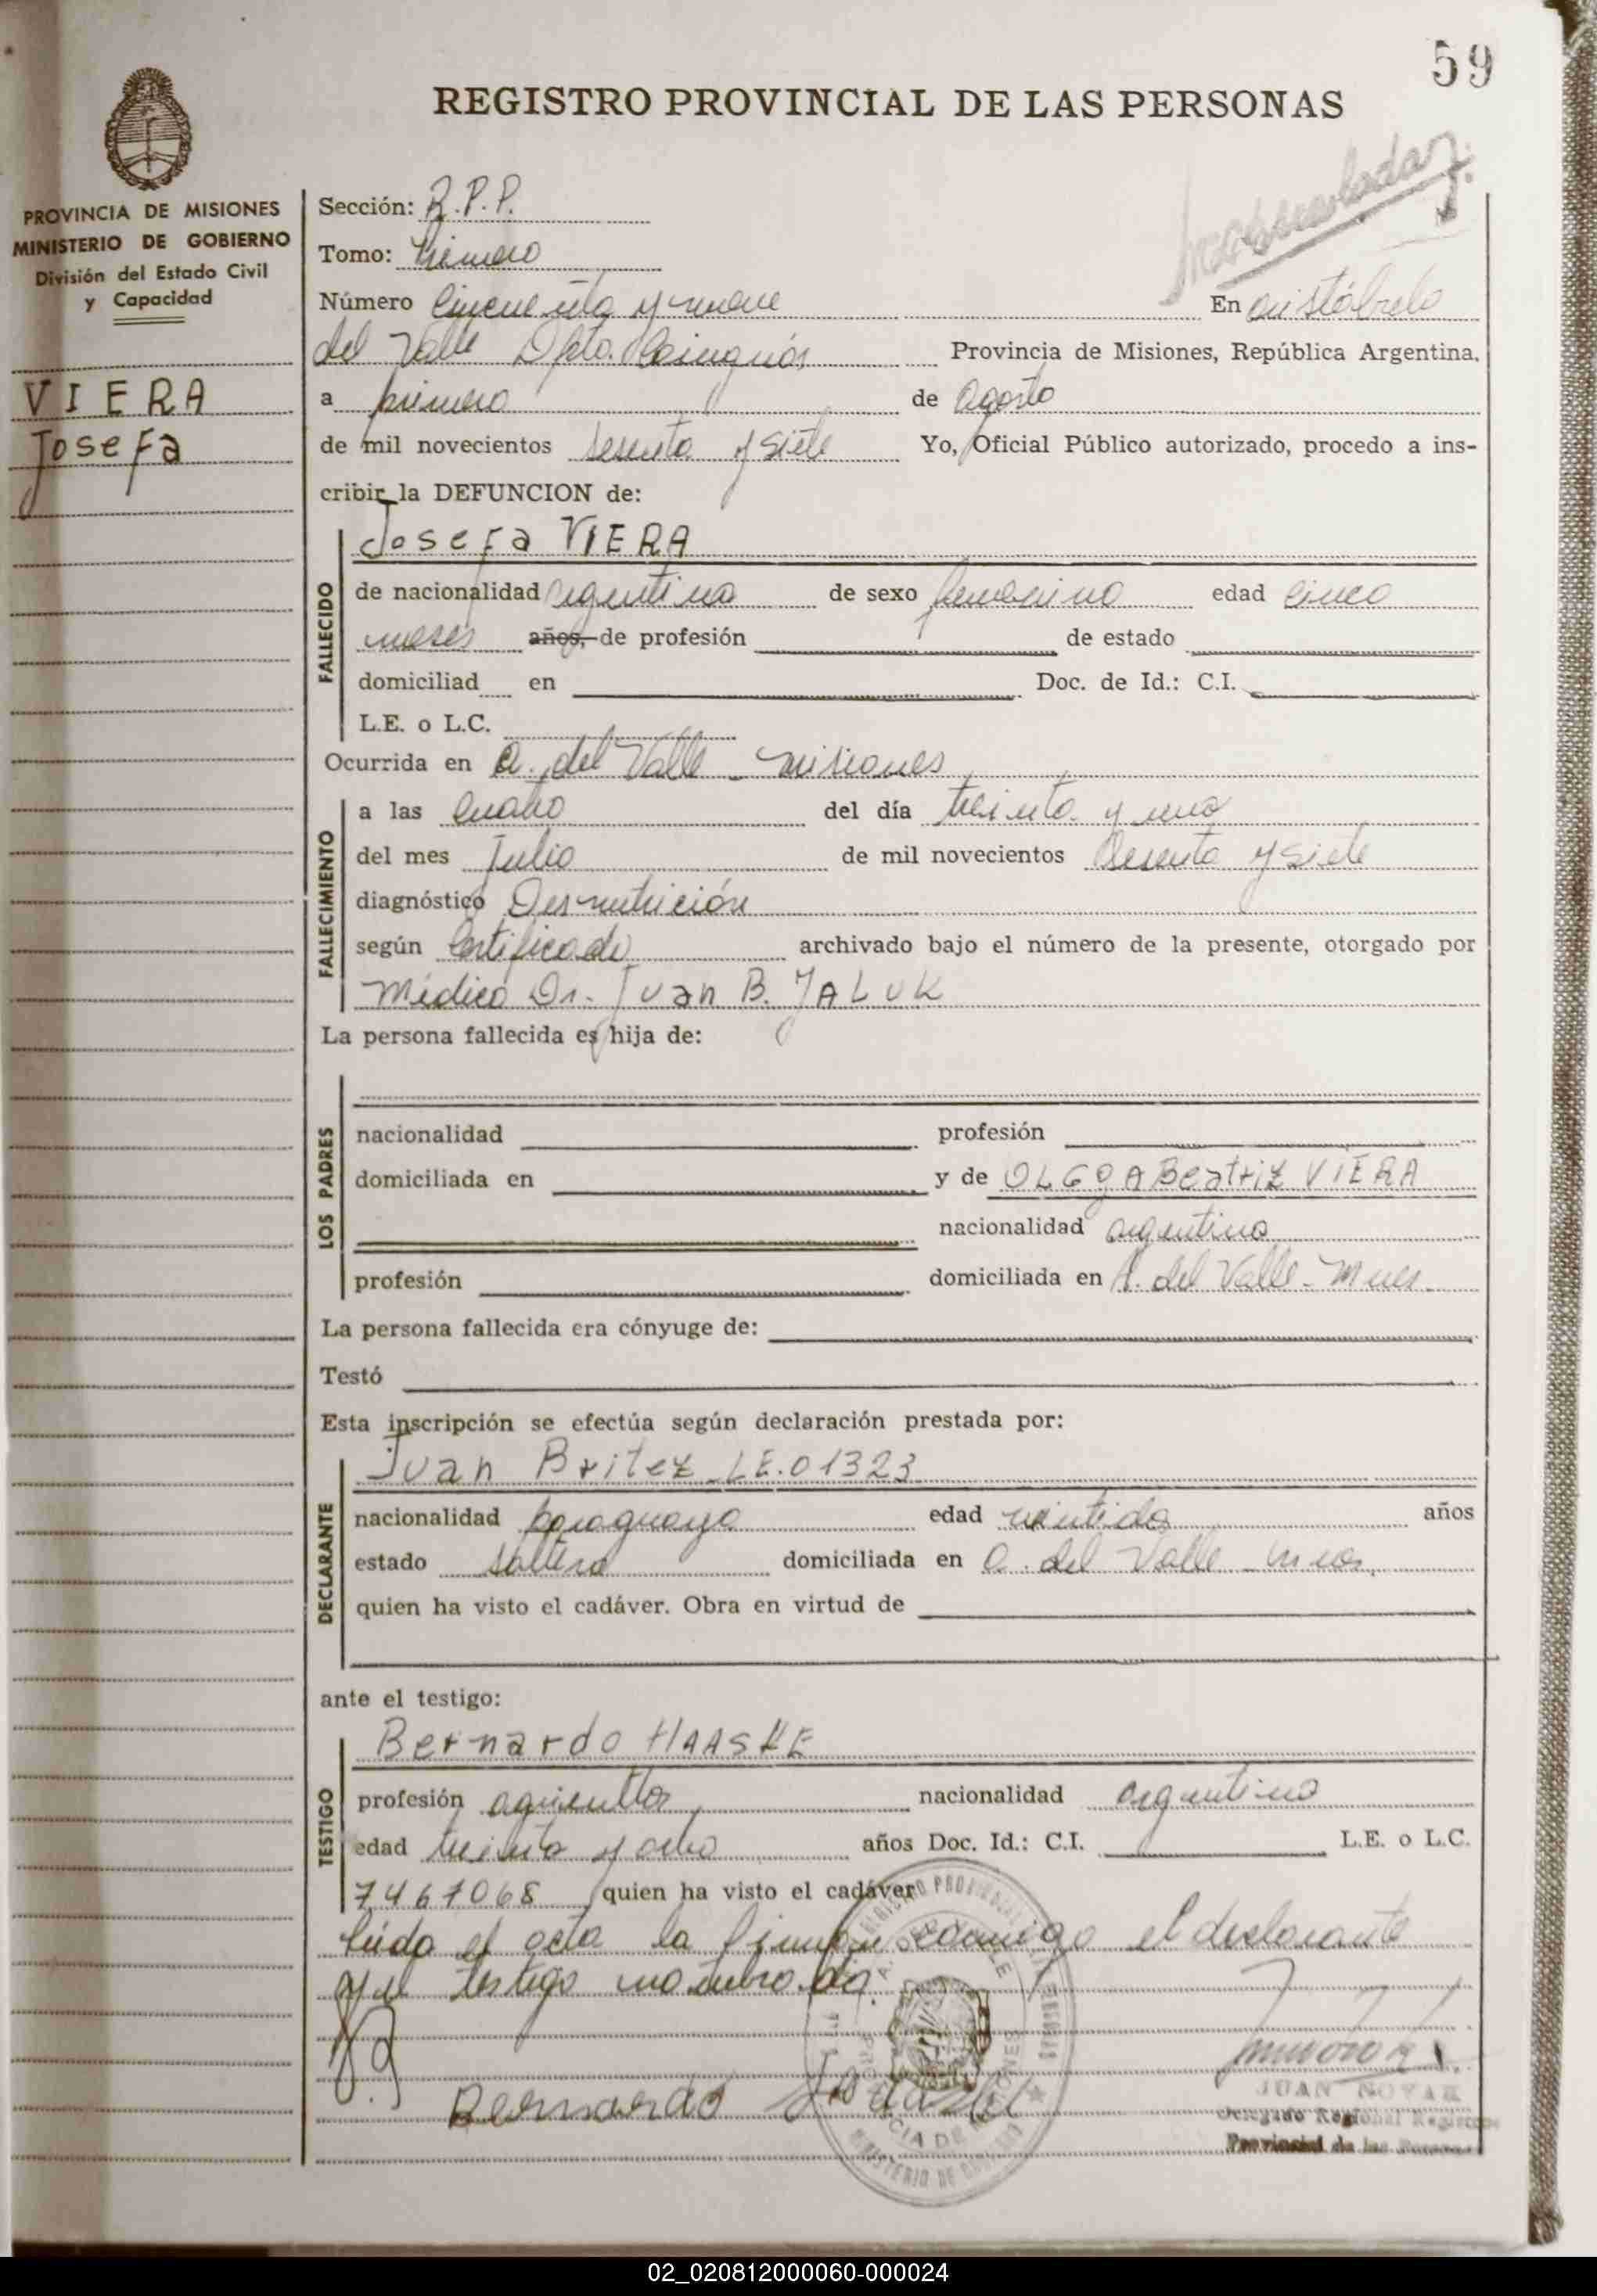 59
REGISTRO PROVINCIAL DE LAS PERSONAS
PROVINCIA DE MISIONES
MINISTERIO DE GOBIERNO
División del Estado Civil
y Capacidad
VIERA
Josefa
Sección: R.P.P.
Tomo: Primero
Número Cincuenta y nueve En Aristóbulo
del Valle Dpto. Cainguás Provincia de Misiones, República Argentina,
a primero de Agosto
de mil novecientos sesenta y siete Yo, Oficial Público autorizado, procedo a ins-
cribir la DEFUNCION de:
Josefa VIERA
FALLECIDO
de nacionalidad argentina de sexo femenino edad cinco
meses años, de profesión de estado
domiciliad en Doc. de Id.: C.I.
L.E. o L.C.
Ocurrida en A. del Valle - Misiones
FALLECIMIENTO
a las cuatro del día treinta y uno
del mes Julio de mil novecientos sesenta y siete
diagnóstico Desnutrición
según Certificado archivado bajo el número de la presente, otorgado por
Médico Dr. Juan B. JALUK
La persona fallecida es hija de:
LOS PADRES
nacionalidad profesión
domiciliada en y de OLGA Beatriz VIERA
nacionalidad argentina
profesión domiciliada en A. del Valle - Mnes.
La persona fallecida era cónyuge de:
Testó
Esta inscripción se efectúa según declaración prestada por:
DECLARANTE
Juan Britez L.E. 01323
nacionalidad paraguaya edad veintidos años
estado soltero domiciliada en A. del Valle - Mnes.
quien ha visto el cadáver. Obra en virtud de
ante el testigo:
TESTIGO
Bernardo HAASKE
profesión agricultor nacionalidad argentina
edad treinta y ocho años Doc. Id.: C.I. L.E. o L.C.
7467068 quien ha visto el cadáver
Leída el acta la firman conmigo el declarante
y el testigo
Bernardo
JUAN NOVAK
Delegado Regional Registro
Provincial de las Personas
02_020812000060-000024